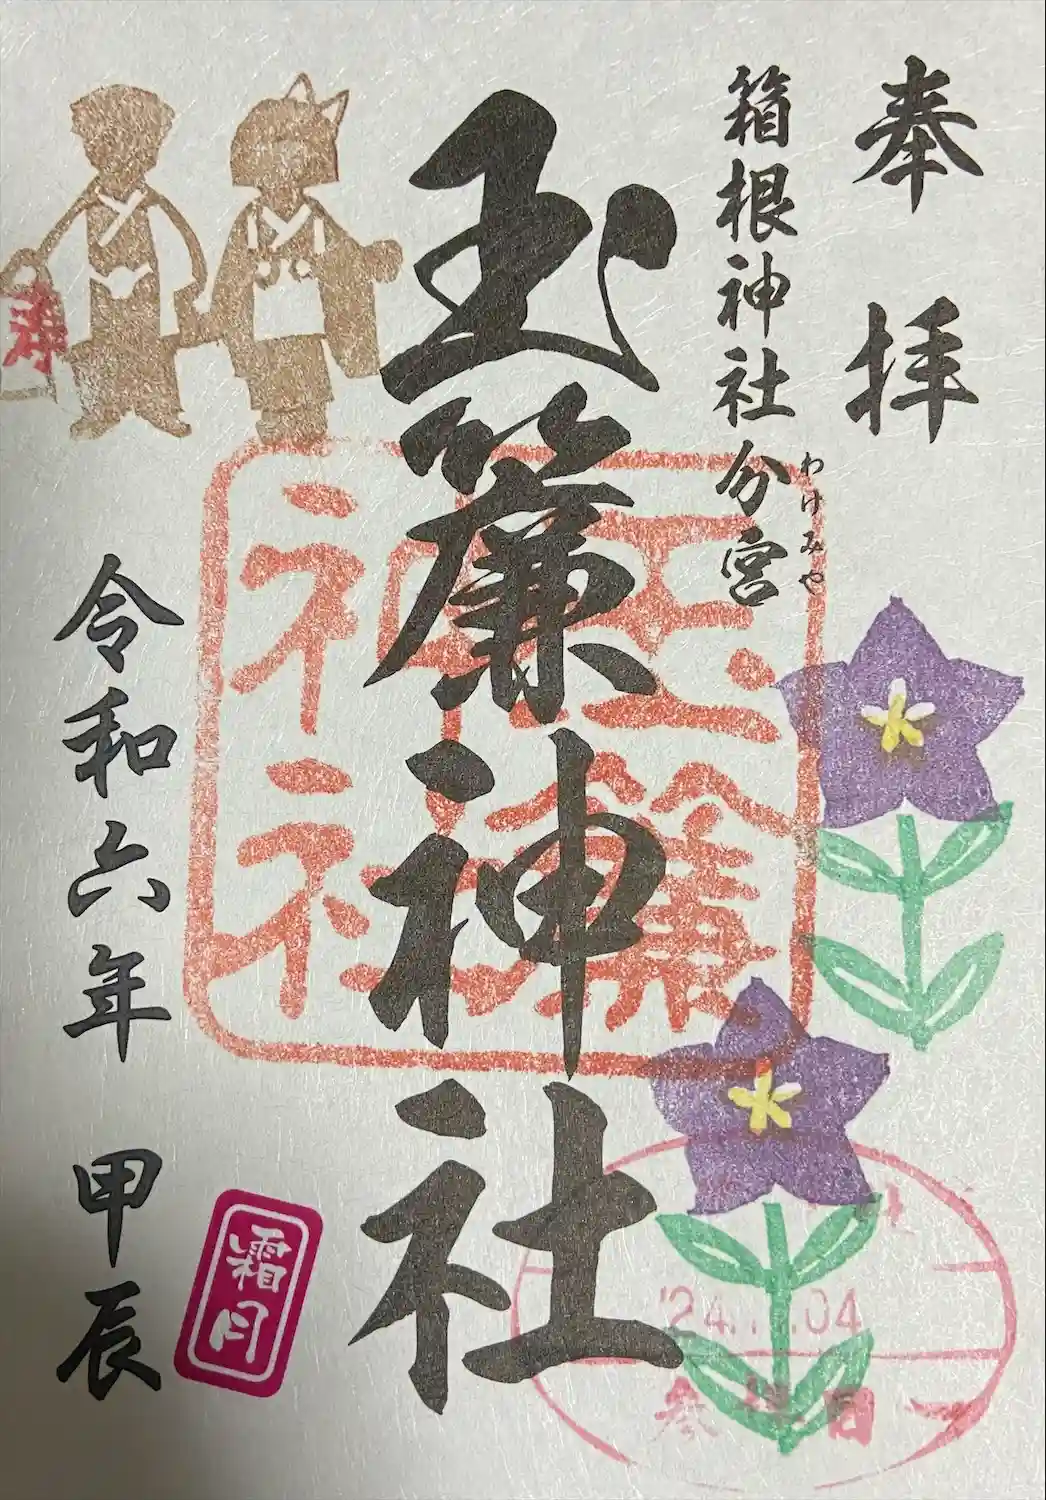 奉拝
箱根神社分宮
わけみや
玉簾神社
玉簾
神社
令和六年 甲辰
霜月
寿
参拝日